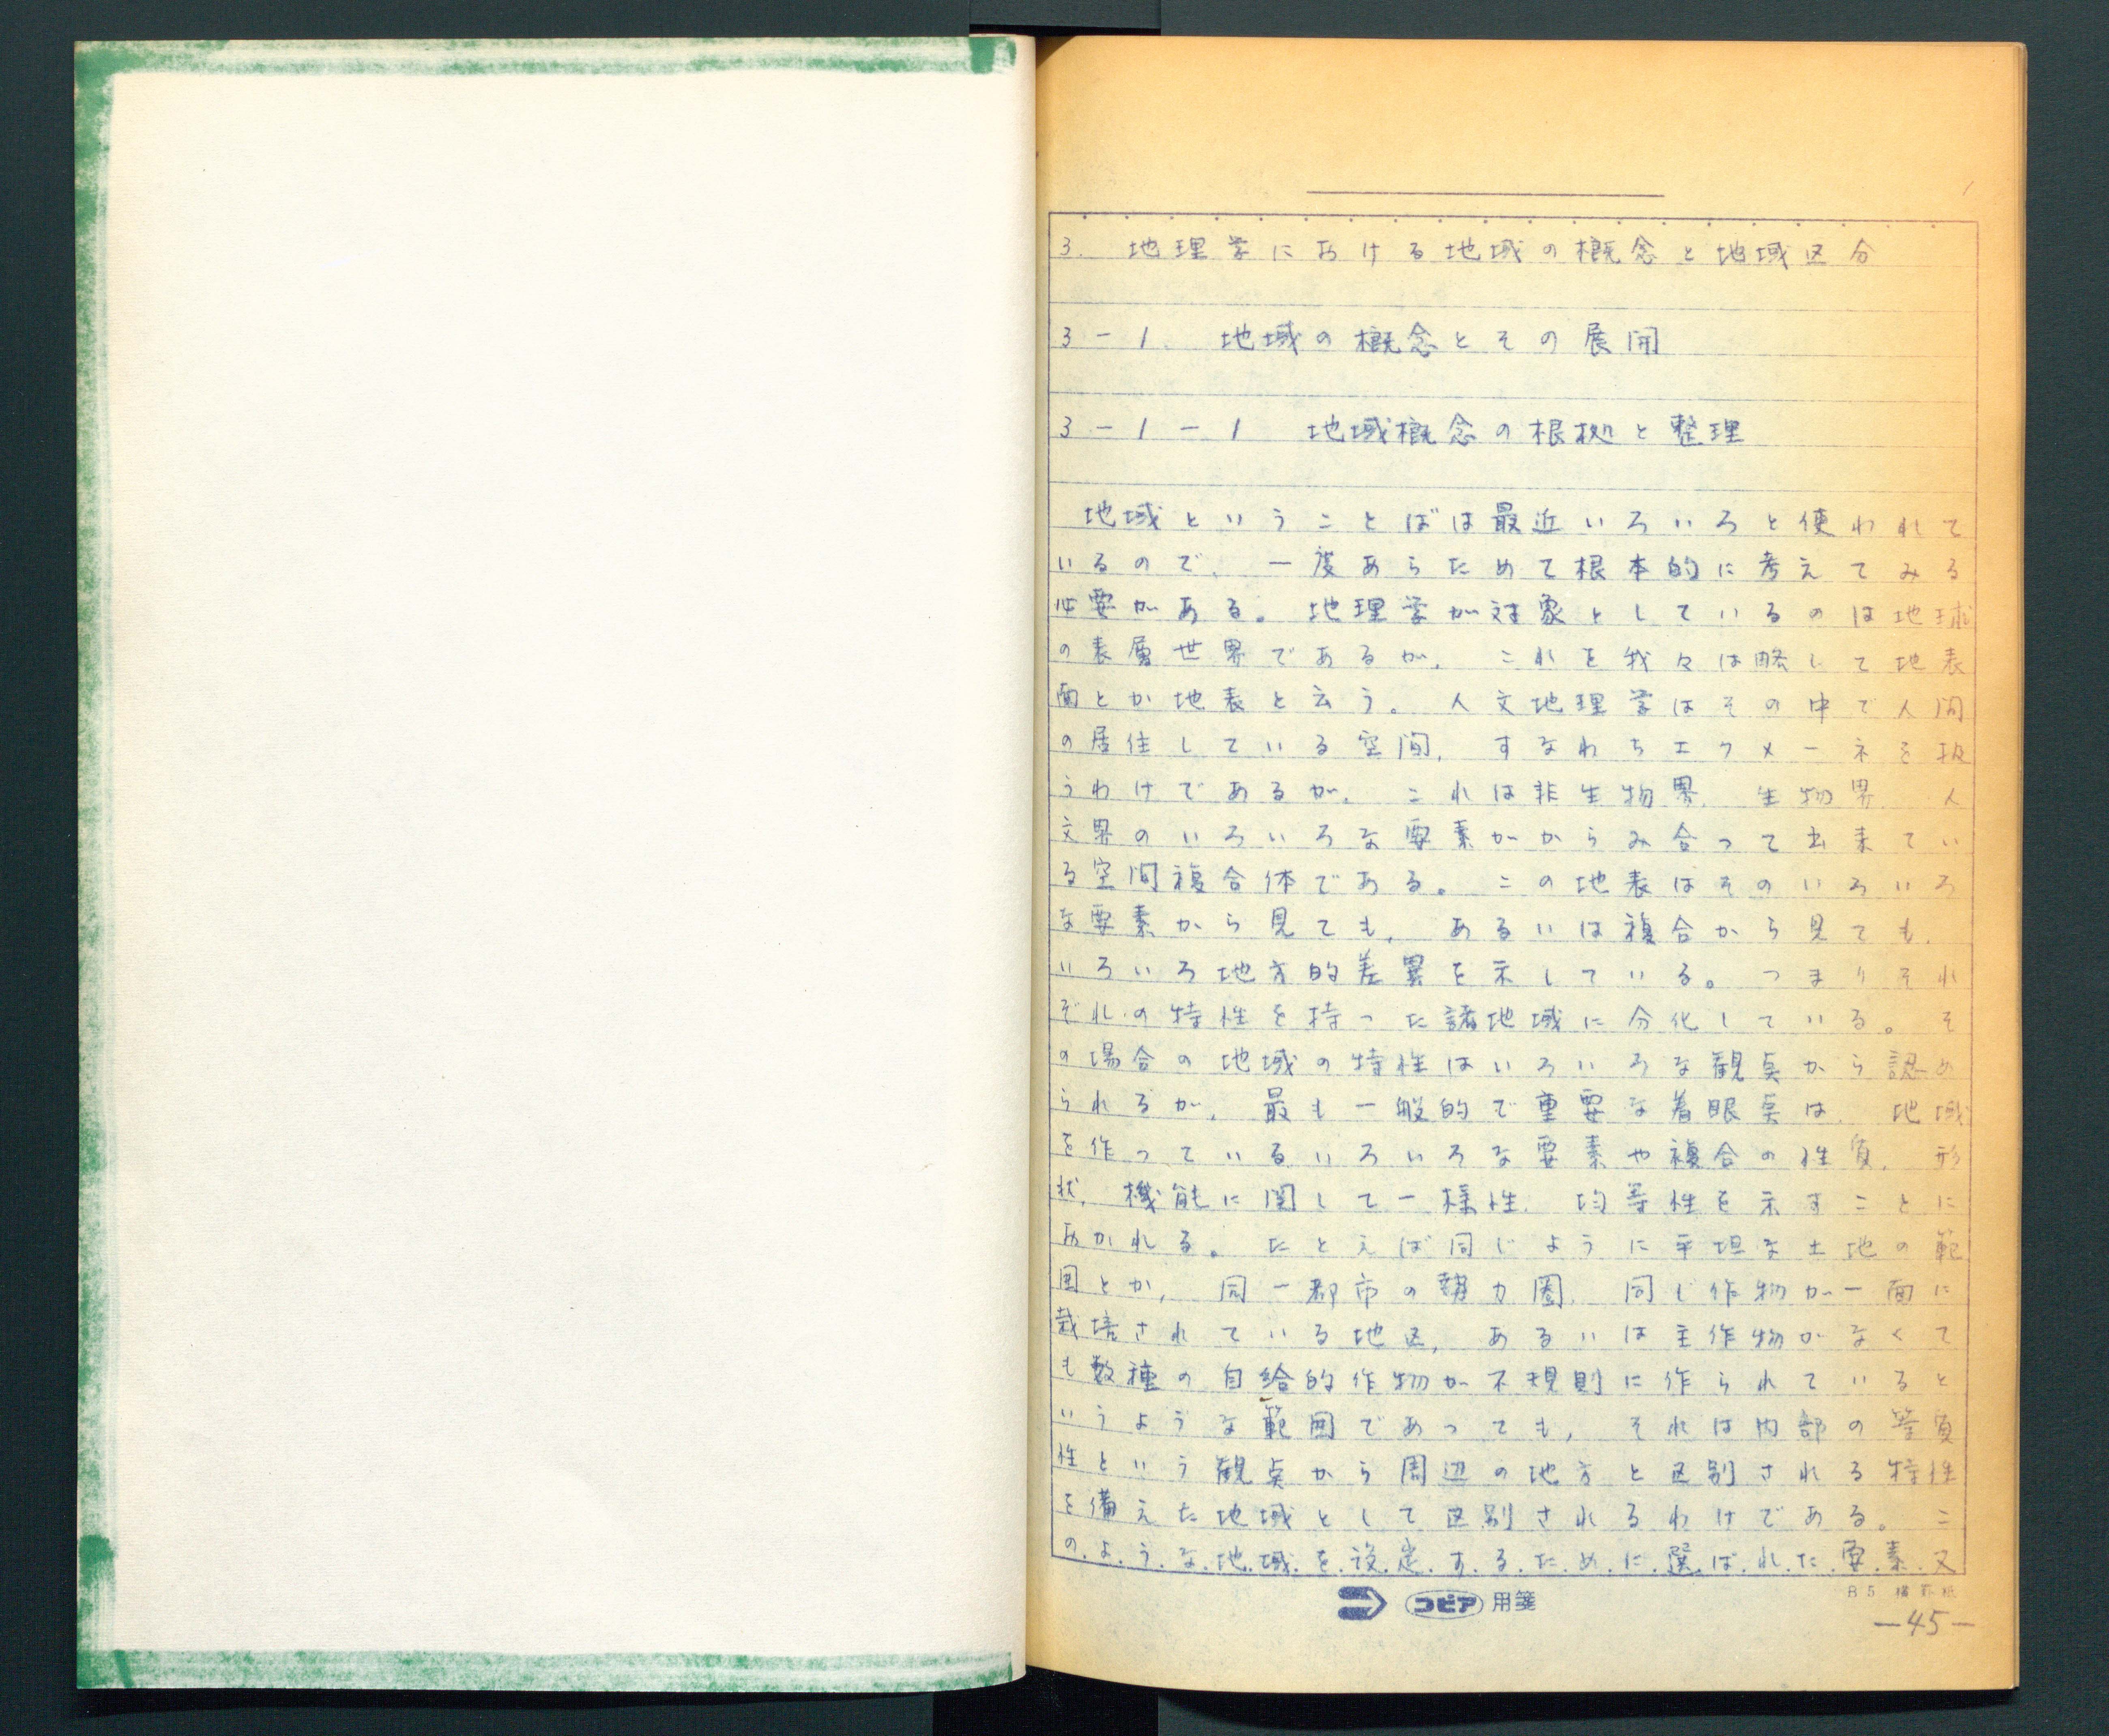 3. 地理学における地域の概念と地域区分
3-1. 地域の概念とその展開
3-1-1 地域概念の根拠と整理
地域ということばは最近いろいろと使われて
いるので、一度あらためて根本的に考えてみる
必要がある。地理学が対象としているのは地球
の表層世界であるが、これを我々は略して地表
面とか地表と云う。人文地理学はその中で人間
の居住している空間、すなわちエクメーネを扱
うわけであるが、これは非生物界、生物界、人
文界のいろいろな要素がからみ合って出来てい
る空間複合体である。この地表はそのいろいろ
な要素から見ても、あるいは複合から見ても、
いろいろ地方的差異を示している。つまりそれ
ぞれの特性を持った諸地域に分化している。そ
の場合の地域の特性はいろいろな観点から認め
られるが、最も一般的で重要な着眼点は、地域
を作っているいろいろな要素や複合の性質、形
状、機能に関して一様性、均等性を示すことに
おかれる。たとえば同じように平坦な土地の範
囲とか、同一都市の勢力圏、同じ作物が一面に
栽培されている地区、あるいは主作物がなくて
も数種の自給的作物が不規則に作られていると
いうような範囲であっても、それは内部の等質
性という観点から周辺の地方と区別される特性
を備えた地域として区別されるわけである。こ
のような地域を設定するために選ばれた要素又
コピア用箋
B5 横罫紙
—45—